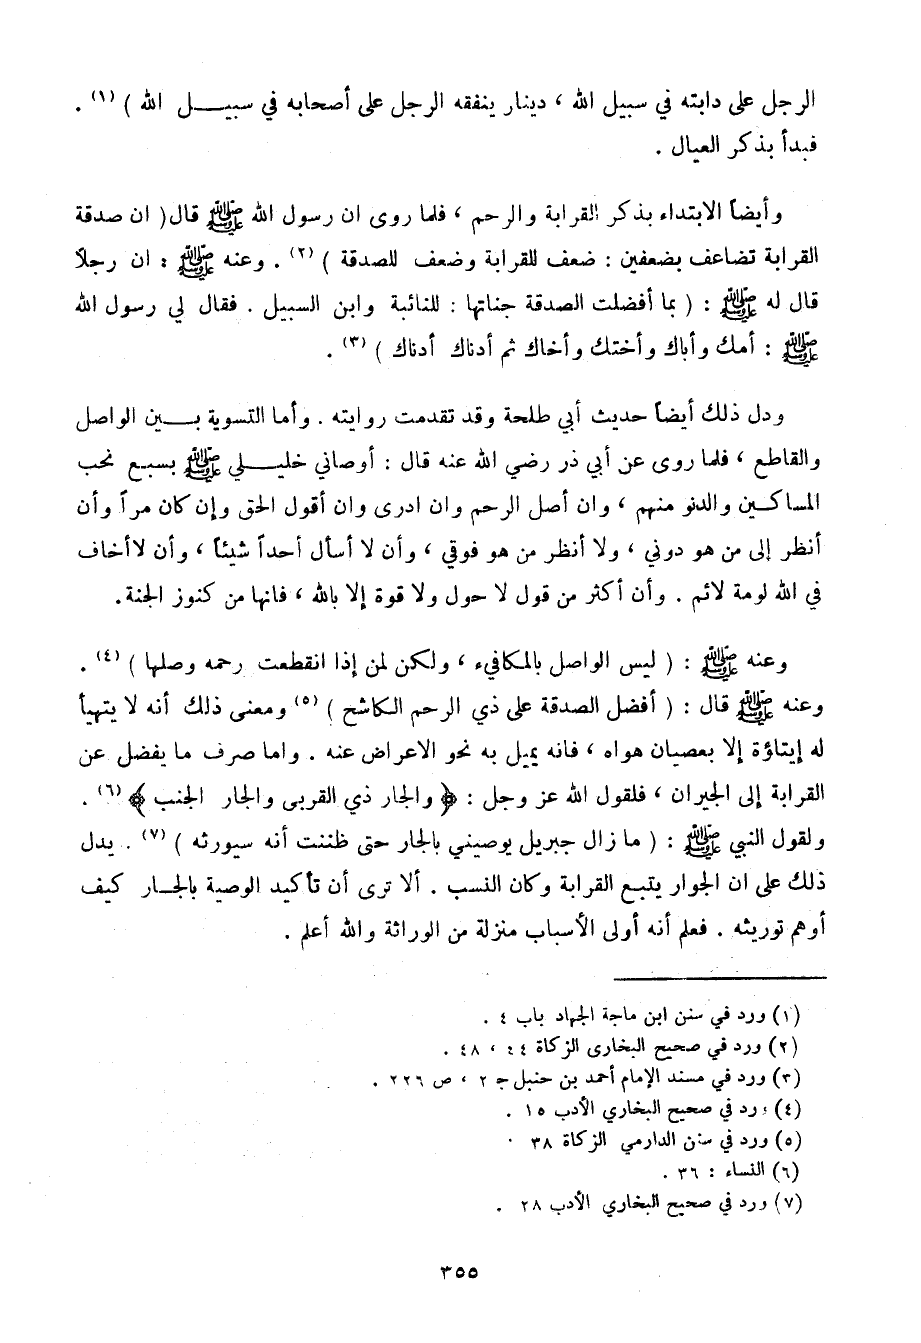 الرجل على دابته في سبيل الله ، دينار ينفقه الرجل على أصحابه في سبيل الله ) (١) .
فبدأ بذكر العيال .
وأيضاً الابتداء بذكر القرابة والرحم ، فلما روى ان رسول الله ﷺ قال ( ان صدقة
القرابة تضاعف بضعفين : ضعف للقرابة وضعف للصدقة ) (٢) . وعنه ﷺ : ان رجلاً
قال له ﷺ : ( بما أفضلت الصدقة جناتها : للنائبة وابن السبيل . فقال لي رسول الله
ﷺ : أمك وأباك وأختك وأخاك ثم أدناك أدناك ) (٣) .
ودل ذلك أيضاً حديث أبي طلحة وقد تقدمت روايته . وأما التسوية بين الواصل
والقاطع ، فلما روى عن أبي ذر رضي الله عنه قال : أوصاني خليلي ﷺ بسبع نحب
المساكين والدنو منهم ، وان أصل الرحم وان ادرى وان أقول الحق وإن كان مراً وأن
أنظر إلى من هو دوني ، ولا أنظر من هو فوقي ، وأن لا أسأل أحداً شيئاً ، وأن لا أخاف
في الله لومة لائم . وأن أكثر من قول لا حول ولا قوة إلا بالله ، فانها من كنوز الجنة .
وعنه ﷺ : ( ليس الواصل بالمكافيء ، ولكن لمن إذا انقطعت رحمه وصلها ) (٤) .
وعنه ﷺ قال : ( أفضل الصدقة على ذي الرحم الكاشح ) (٥) ومعنى ذلك أنه لا يتهيأ
له إيتاؤة إلا بعصيان هواه ، فانه يميل به نحو الاعراض عنه . واما صرف ما يفضل عن
القرابة إلى الجيران ، فلقول الله عز وجل : ﴿ والجار ذي القربى والجار الجنب ﴾ (٦) .
ولقول النبي ﷺ : ( ما زال جبريل يوصيني بالجار حتى ظننت أنه سيورثه ) (٧) . يدل
ذلك على ان الجوار يتبع القرابة وكان النسب . ألا ترى أن تأكيد الوصية بالجار كيف
أوهم توريثه . فعلم أنه أولى الأسباب منزلة من الوراثة والله أعلم .
(١) ورد في سنن ابن ماجة الجهاد باب ٤ .
(٢) ورد في صحيح البخارى الزكاة ٤٤ ، ٤٨ .
(٣) ورد في مسند الإمام أحمد بن حنبل ج ٢ ، ص ٢٢٦ .
(٤) ورد في صحيح البخاري الأدب ١٥ .
(٥) ورد في سنن الدارمي الزكاة ٣٨ .
(٦) النساء : ٣٦ .
(٧) ورد في صحيح البخاري الأدب ٢٨ .
٣٥٥